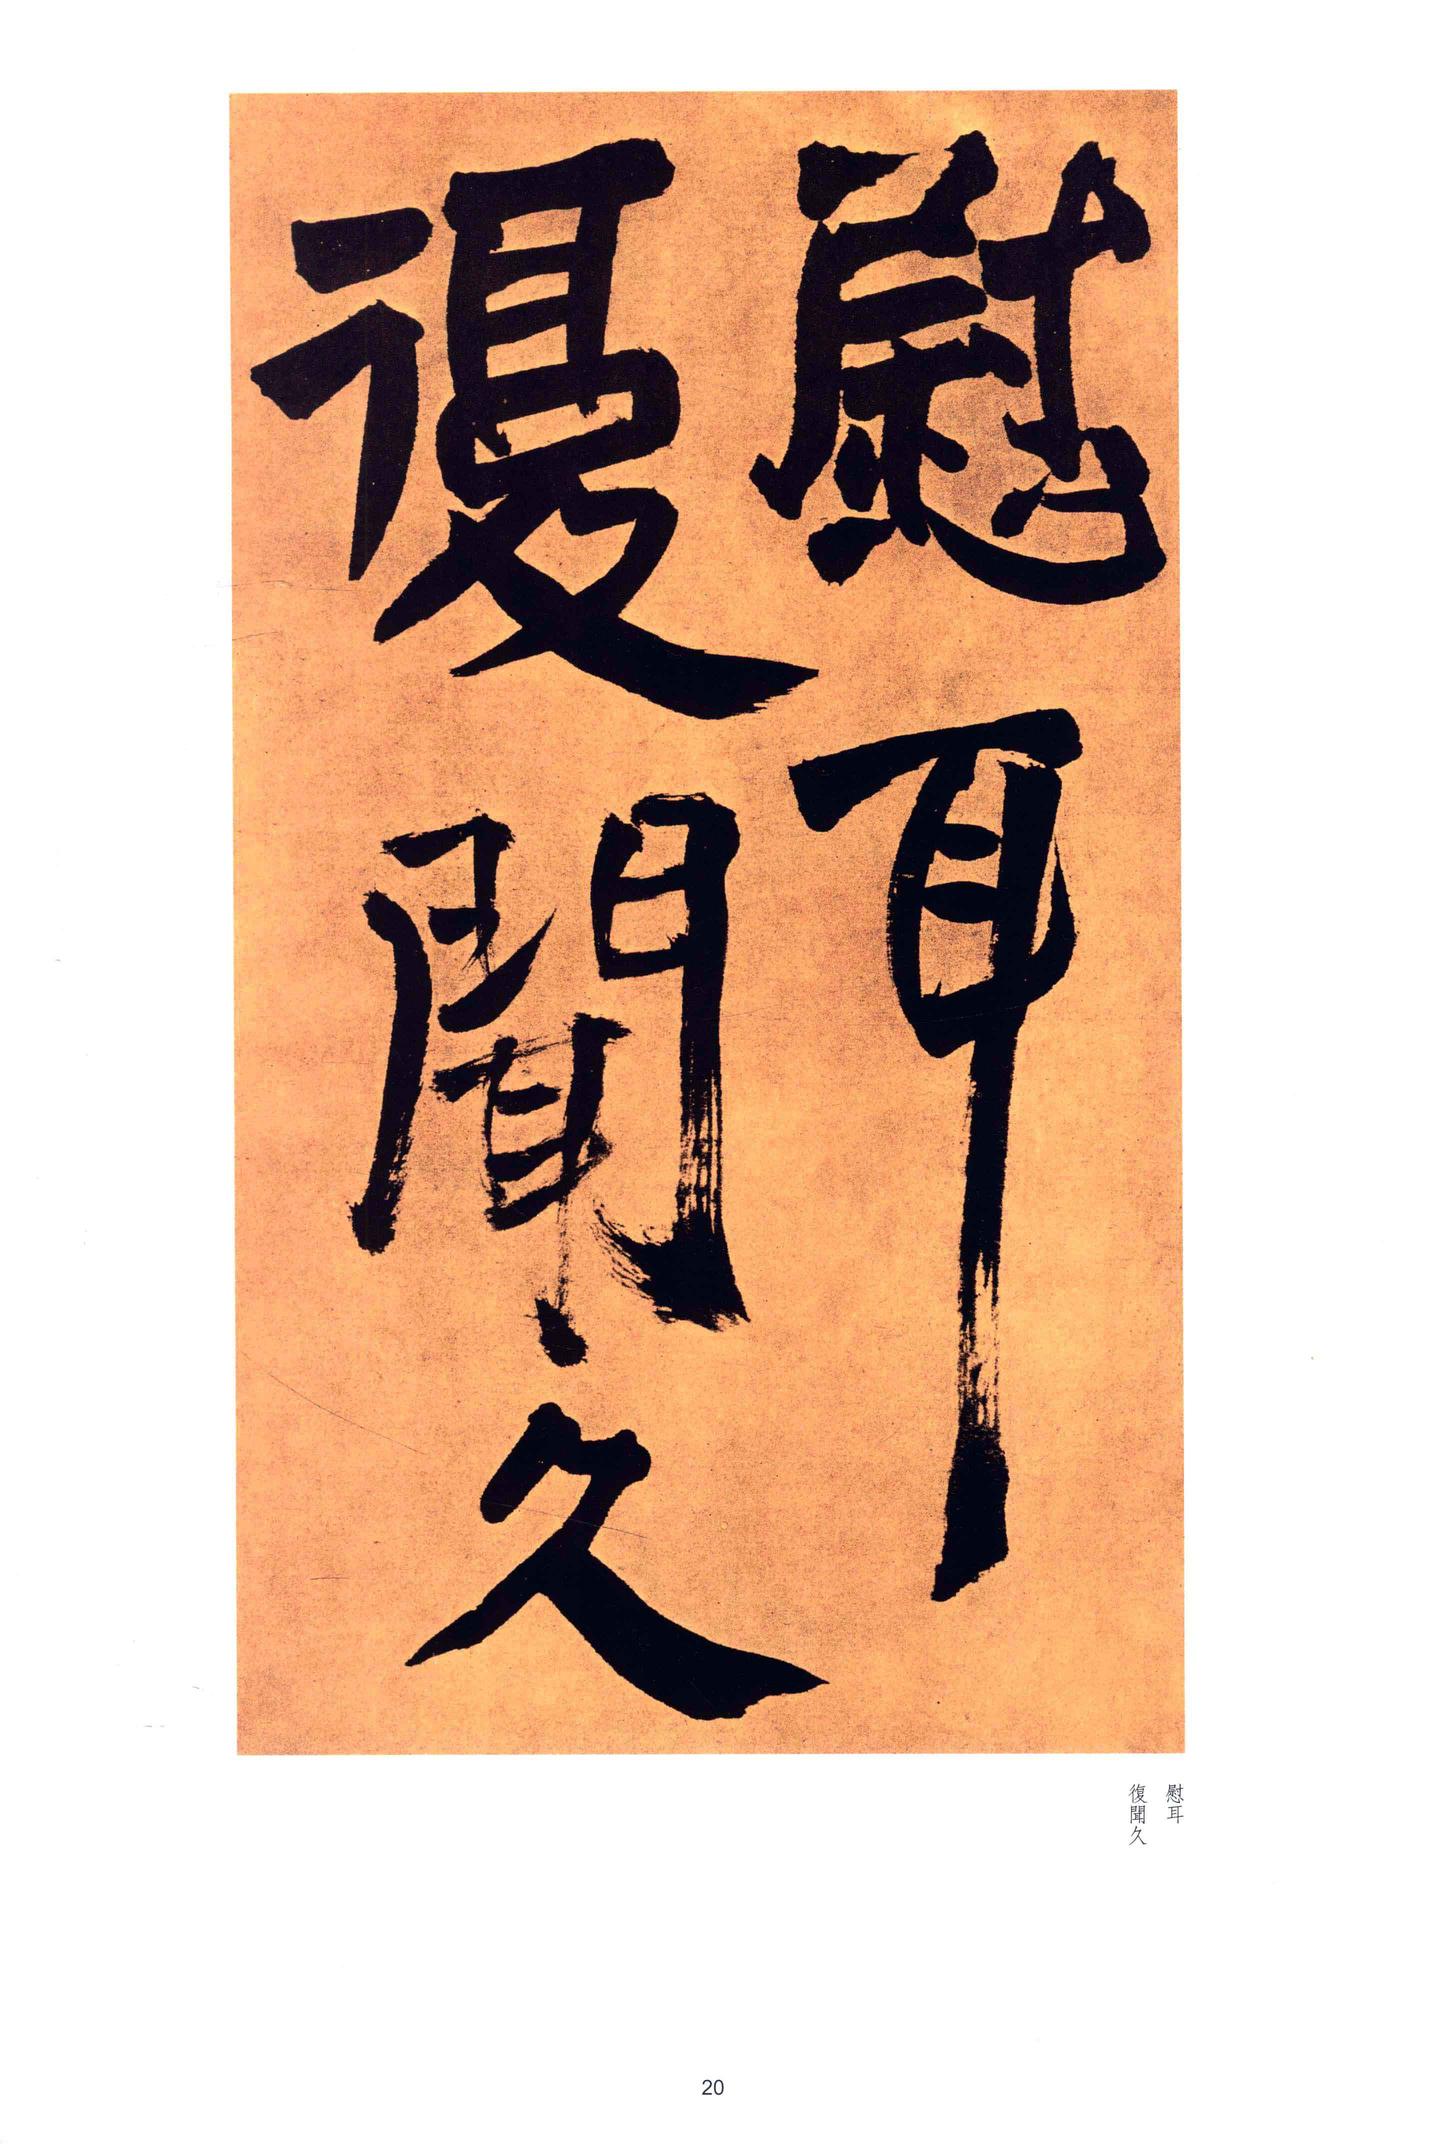 慰耳
復聞久
慰耳
復聞久
20